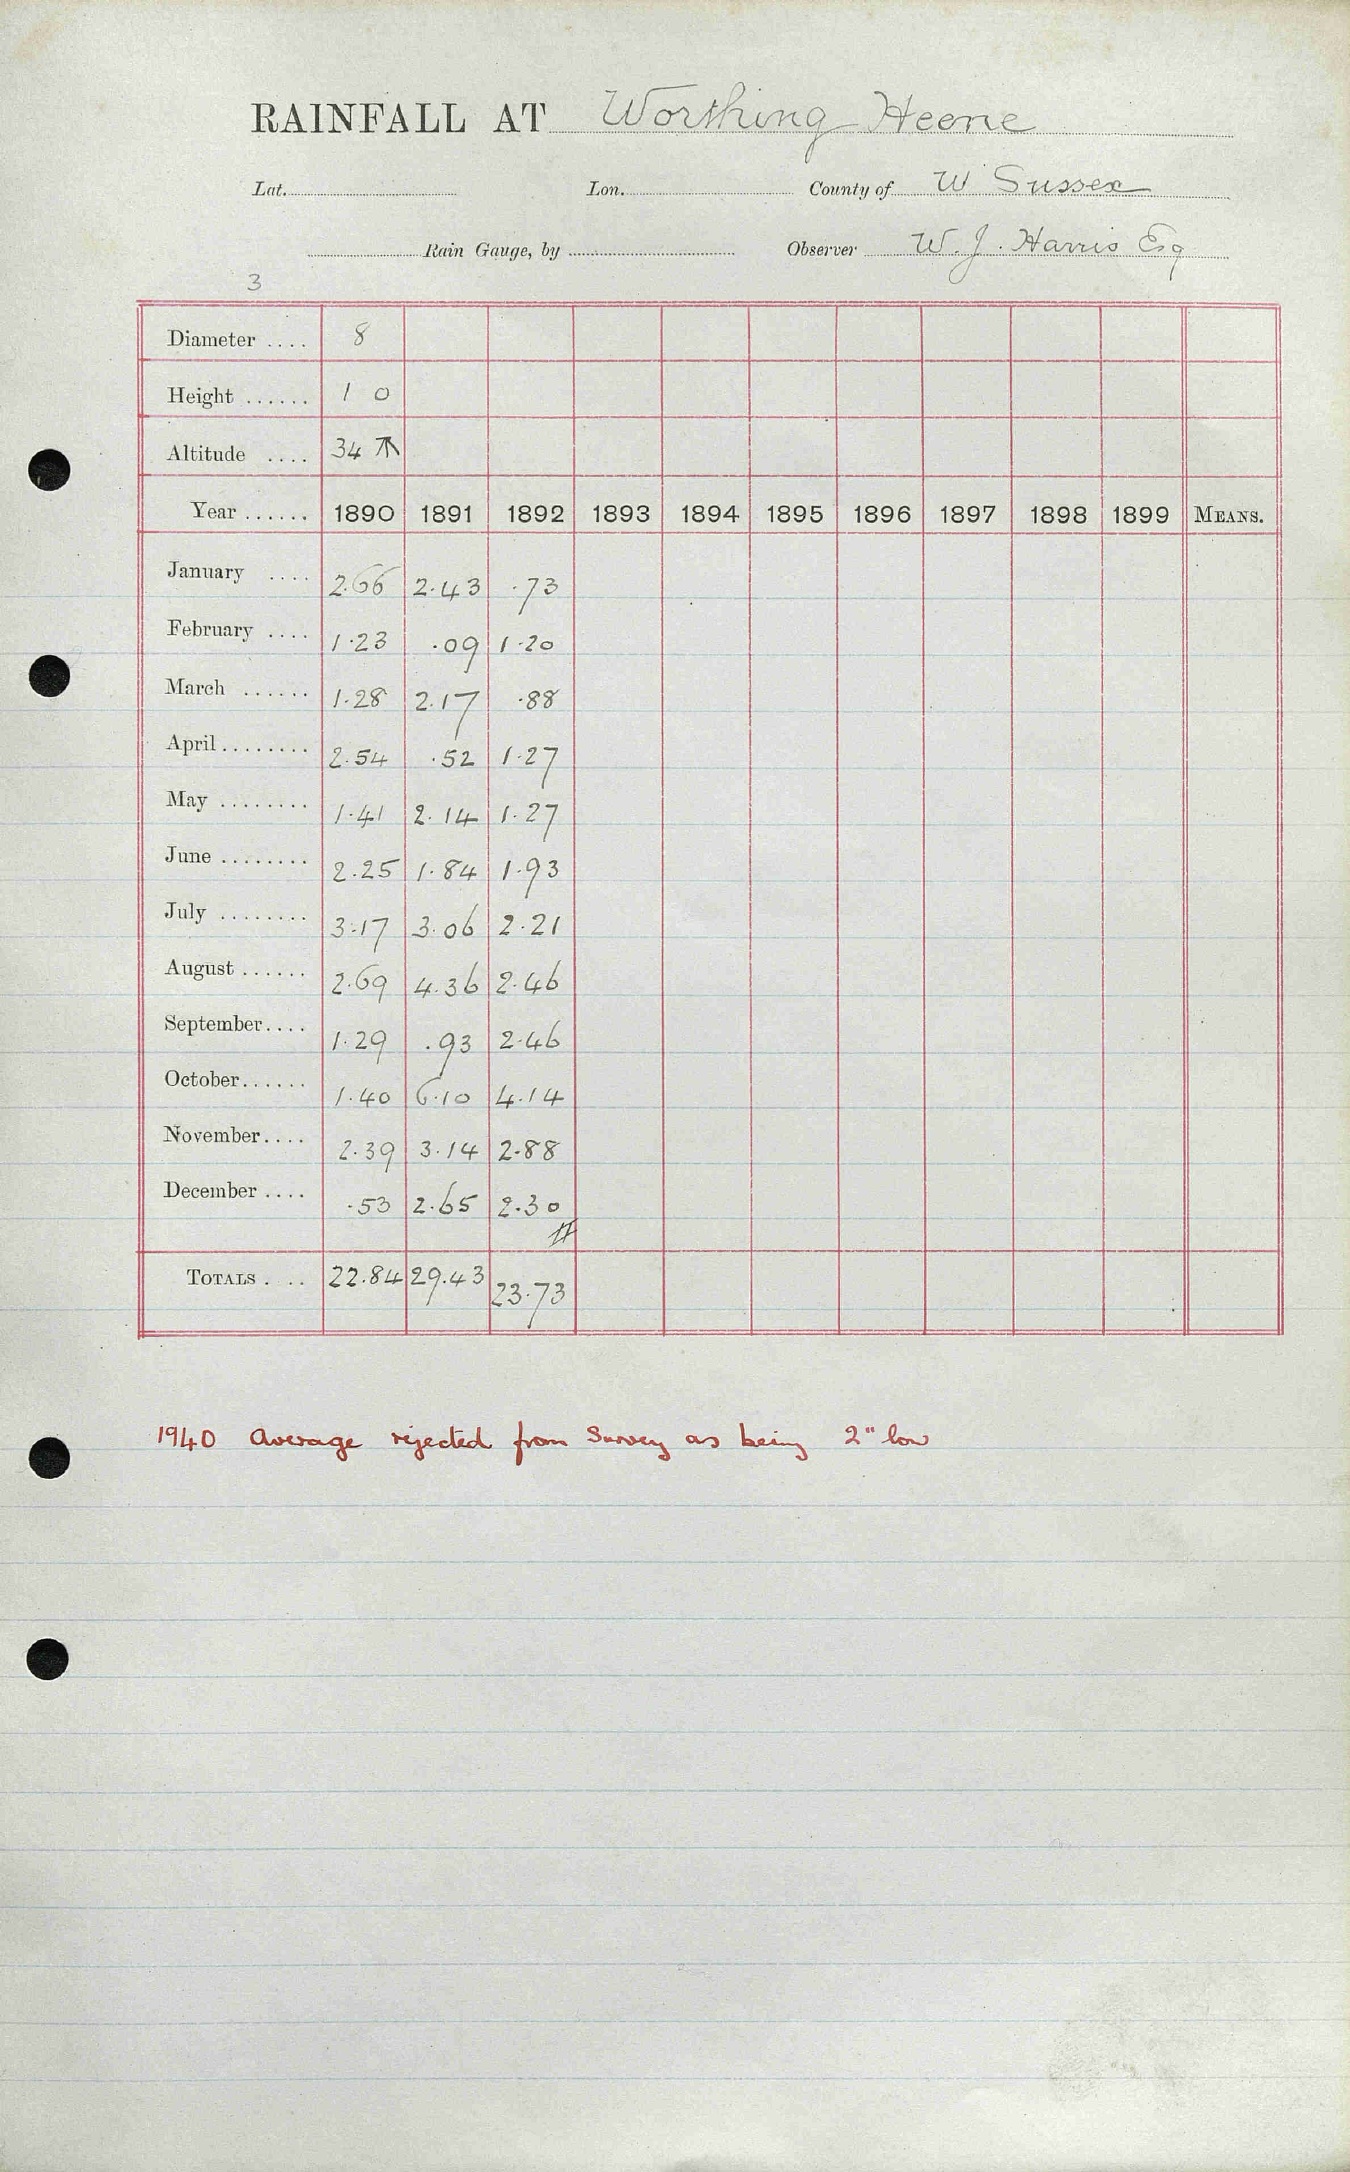 RAINFALL AT Worthing Heene
Lat. Lon. County of W Sussex
Rain Gauge, by Observer W. J. Harris Esq
3
Diameter .... 8
Height ...... 1 0
Altitude .... 34 ↑
Year ...... 1890 1891 1892 1893 1894 1895 1896 1897 1898 1899 MEANS.
January .... 2.66 2.43 .73
February .... 1.23 .09 1.20
March ...... 1.28 2.17 .88
April ........ 2.54 .52 1.27
May ........ 1.41 2.14 1.27
June ........ 2.25 1.84 1.93
July ........ 3.17 3.06 2.21
August ...... 2.69 4.36 2.46
September.... 1.29 .93 2.46
October...... 1.40 6.10 4.14
November.... 2.39 3.14 2.88
December .... .53 2.65 2.30
TOTALS . .. 22.84 29.43 23.73
1940 Average rejected from Survey as being 2" low